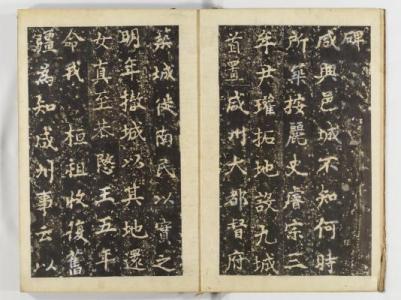 碑
咸興邑城不知何時
所築按麗史睿宗三
年尹瓘拓地設九城
首置咸州大都督府
築城徙南民以實之
明年撤城以其地還
女真至恭愍王五年
命我 桓祖收復舊
疆爲知咸州事云以